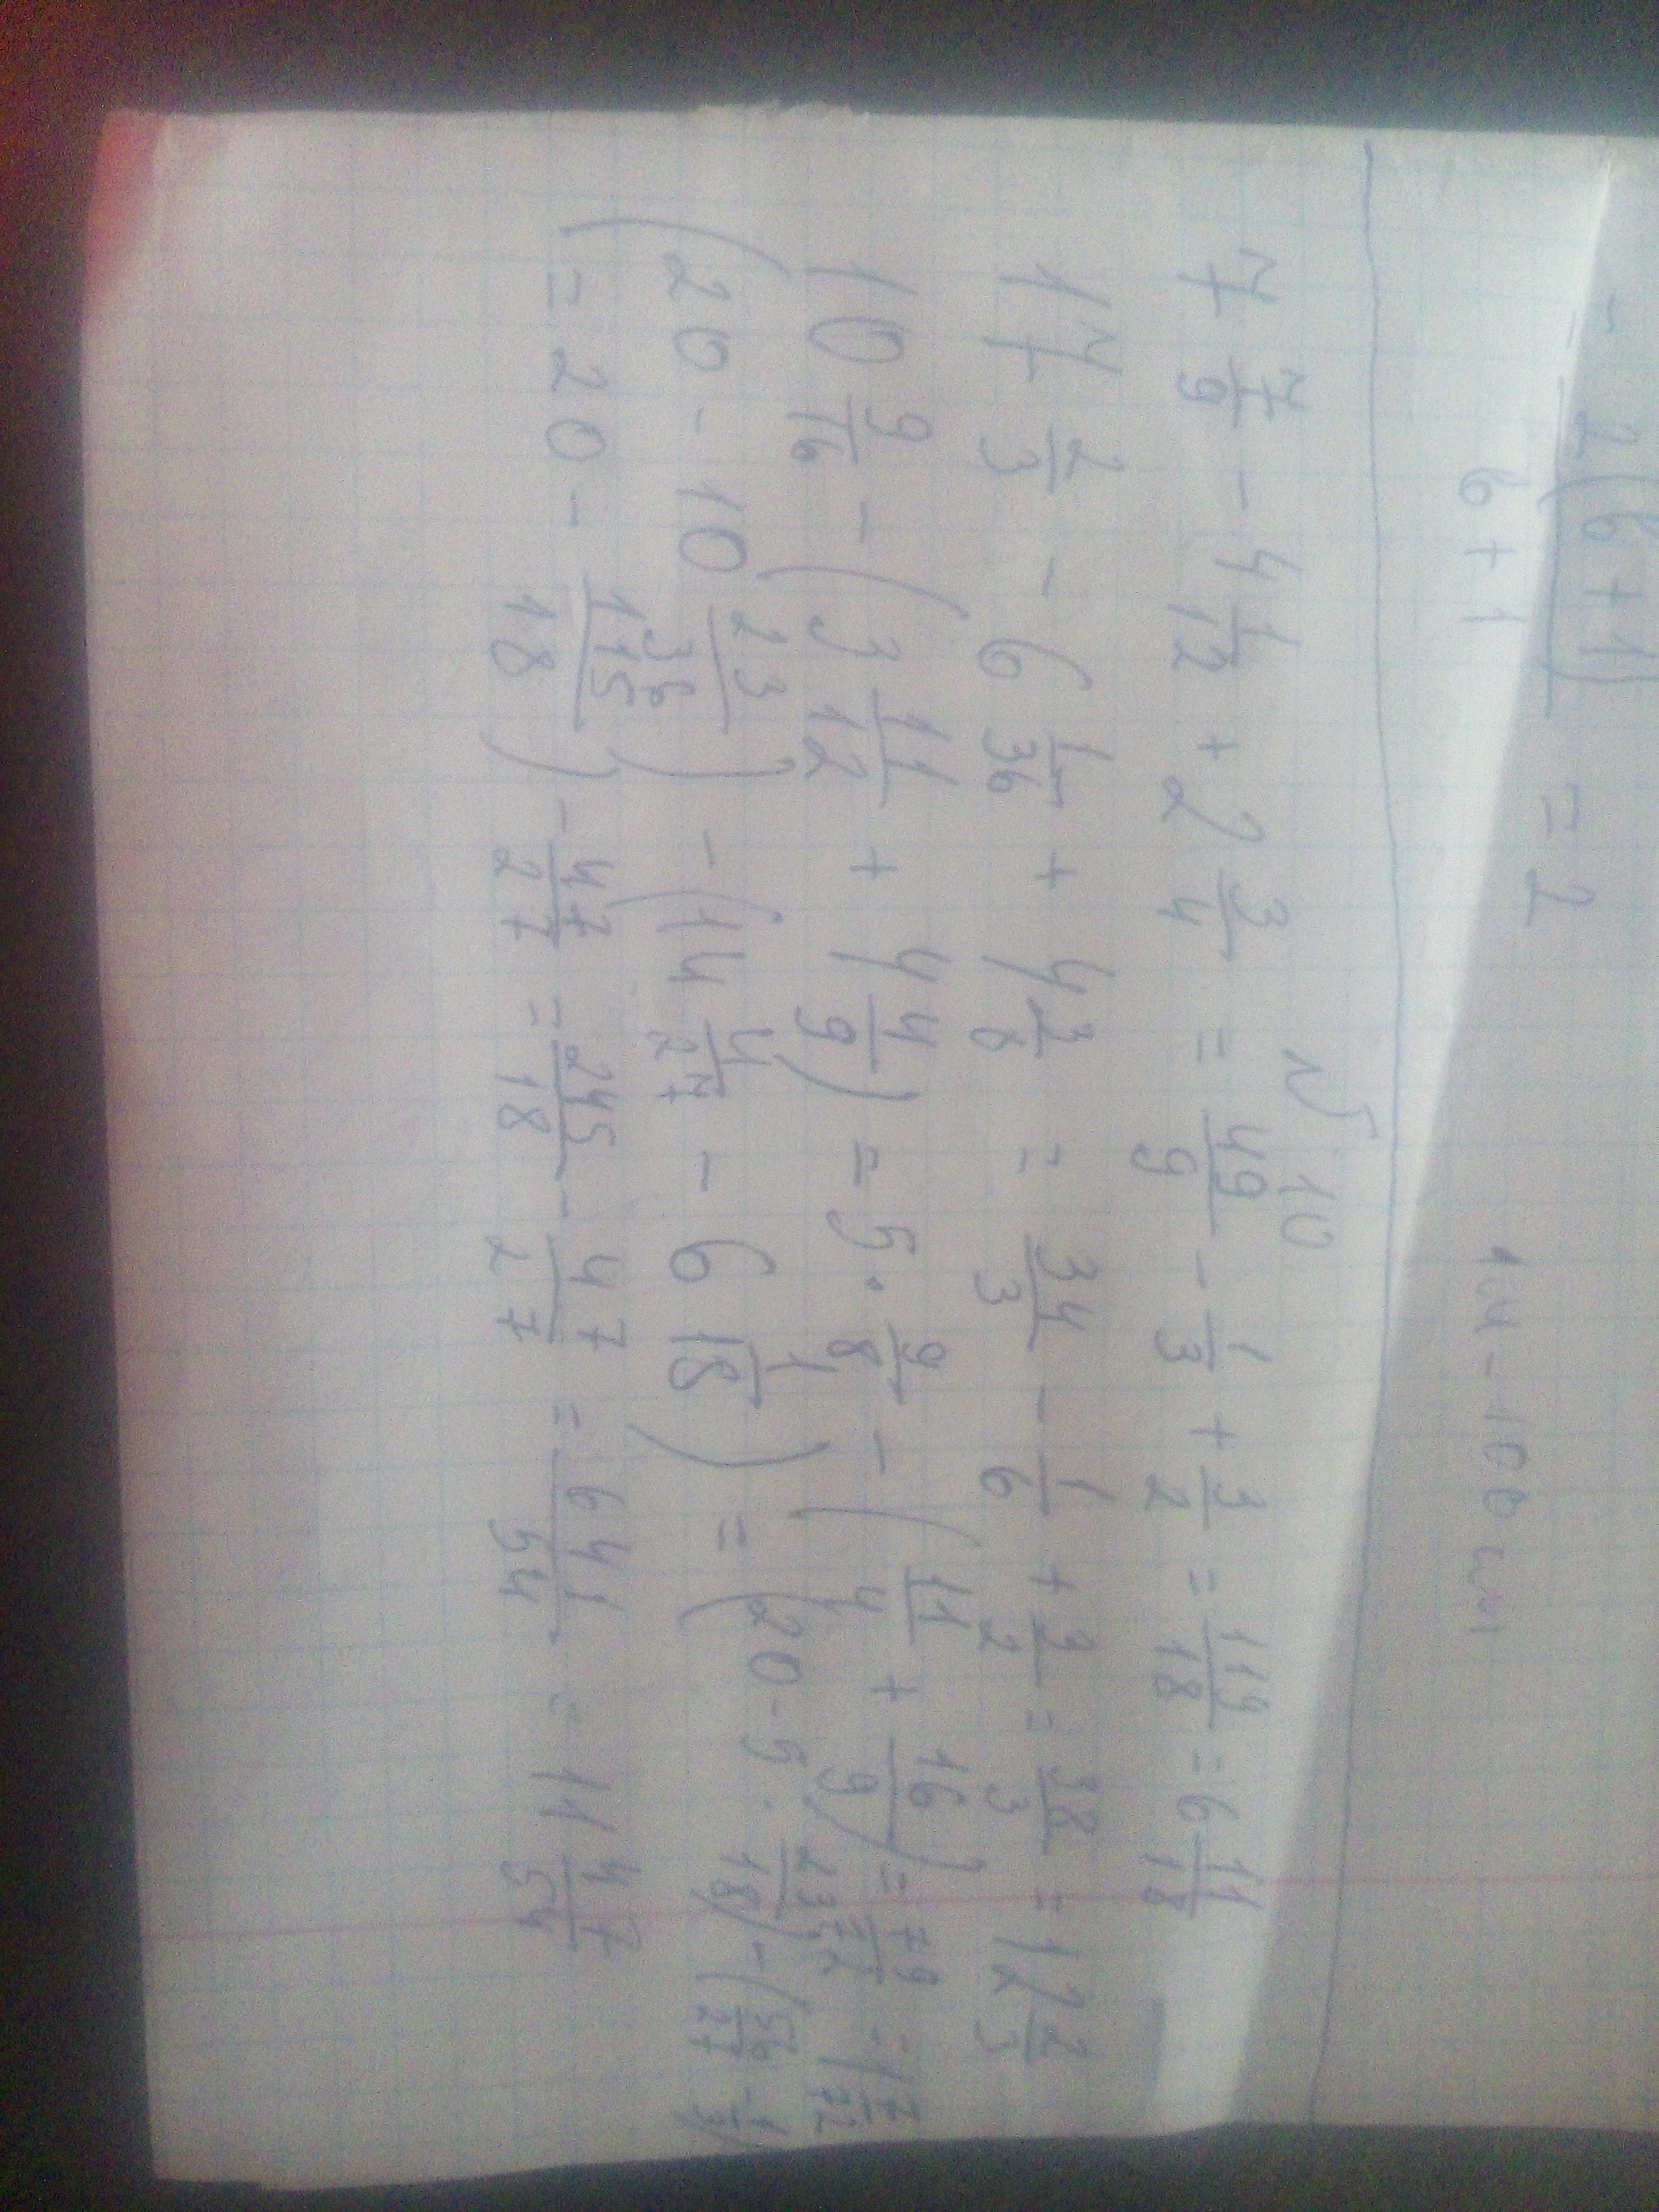 2(6+1)
6+1 = 2
1м - 100 см
№ 10
7 7/9 - 4 1/12 + 2 3/4 = 49/9 - 1/3 + 3/2 = 119/18 = 6 11/18
17 2/3 - 6 1/36 + 4 3/8 = 34/3 - 1/6 + 3/2 = 38/3 = 12 2/3
10 9/16 - (3 11/12 + 4 4/9) = 5 · 9/8 - (11/4 + 16/9) = 79/72 = 1 7/72
(20 - 10 23/36) - (14 4/27 - 6 1/18) = (20 - 5 · 23/18) - (56/27 - 1/3)
= 20 - 115/18) - 47/27 = 245/18 - 47/27 = 641/54 = 11 47/54